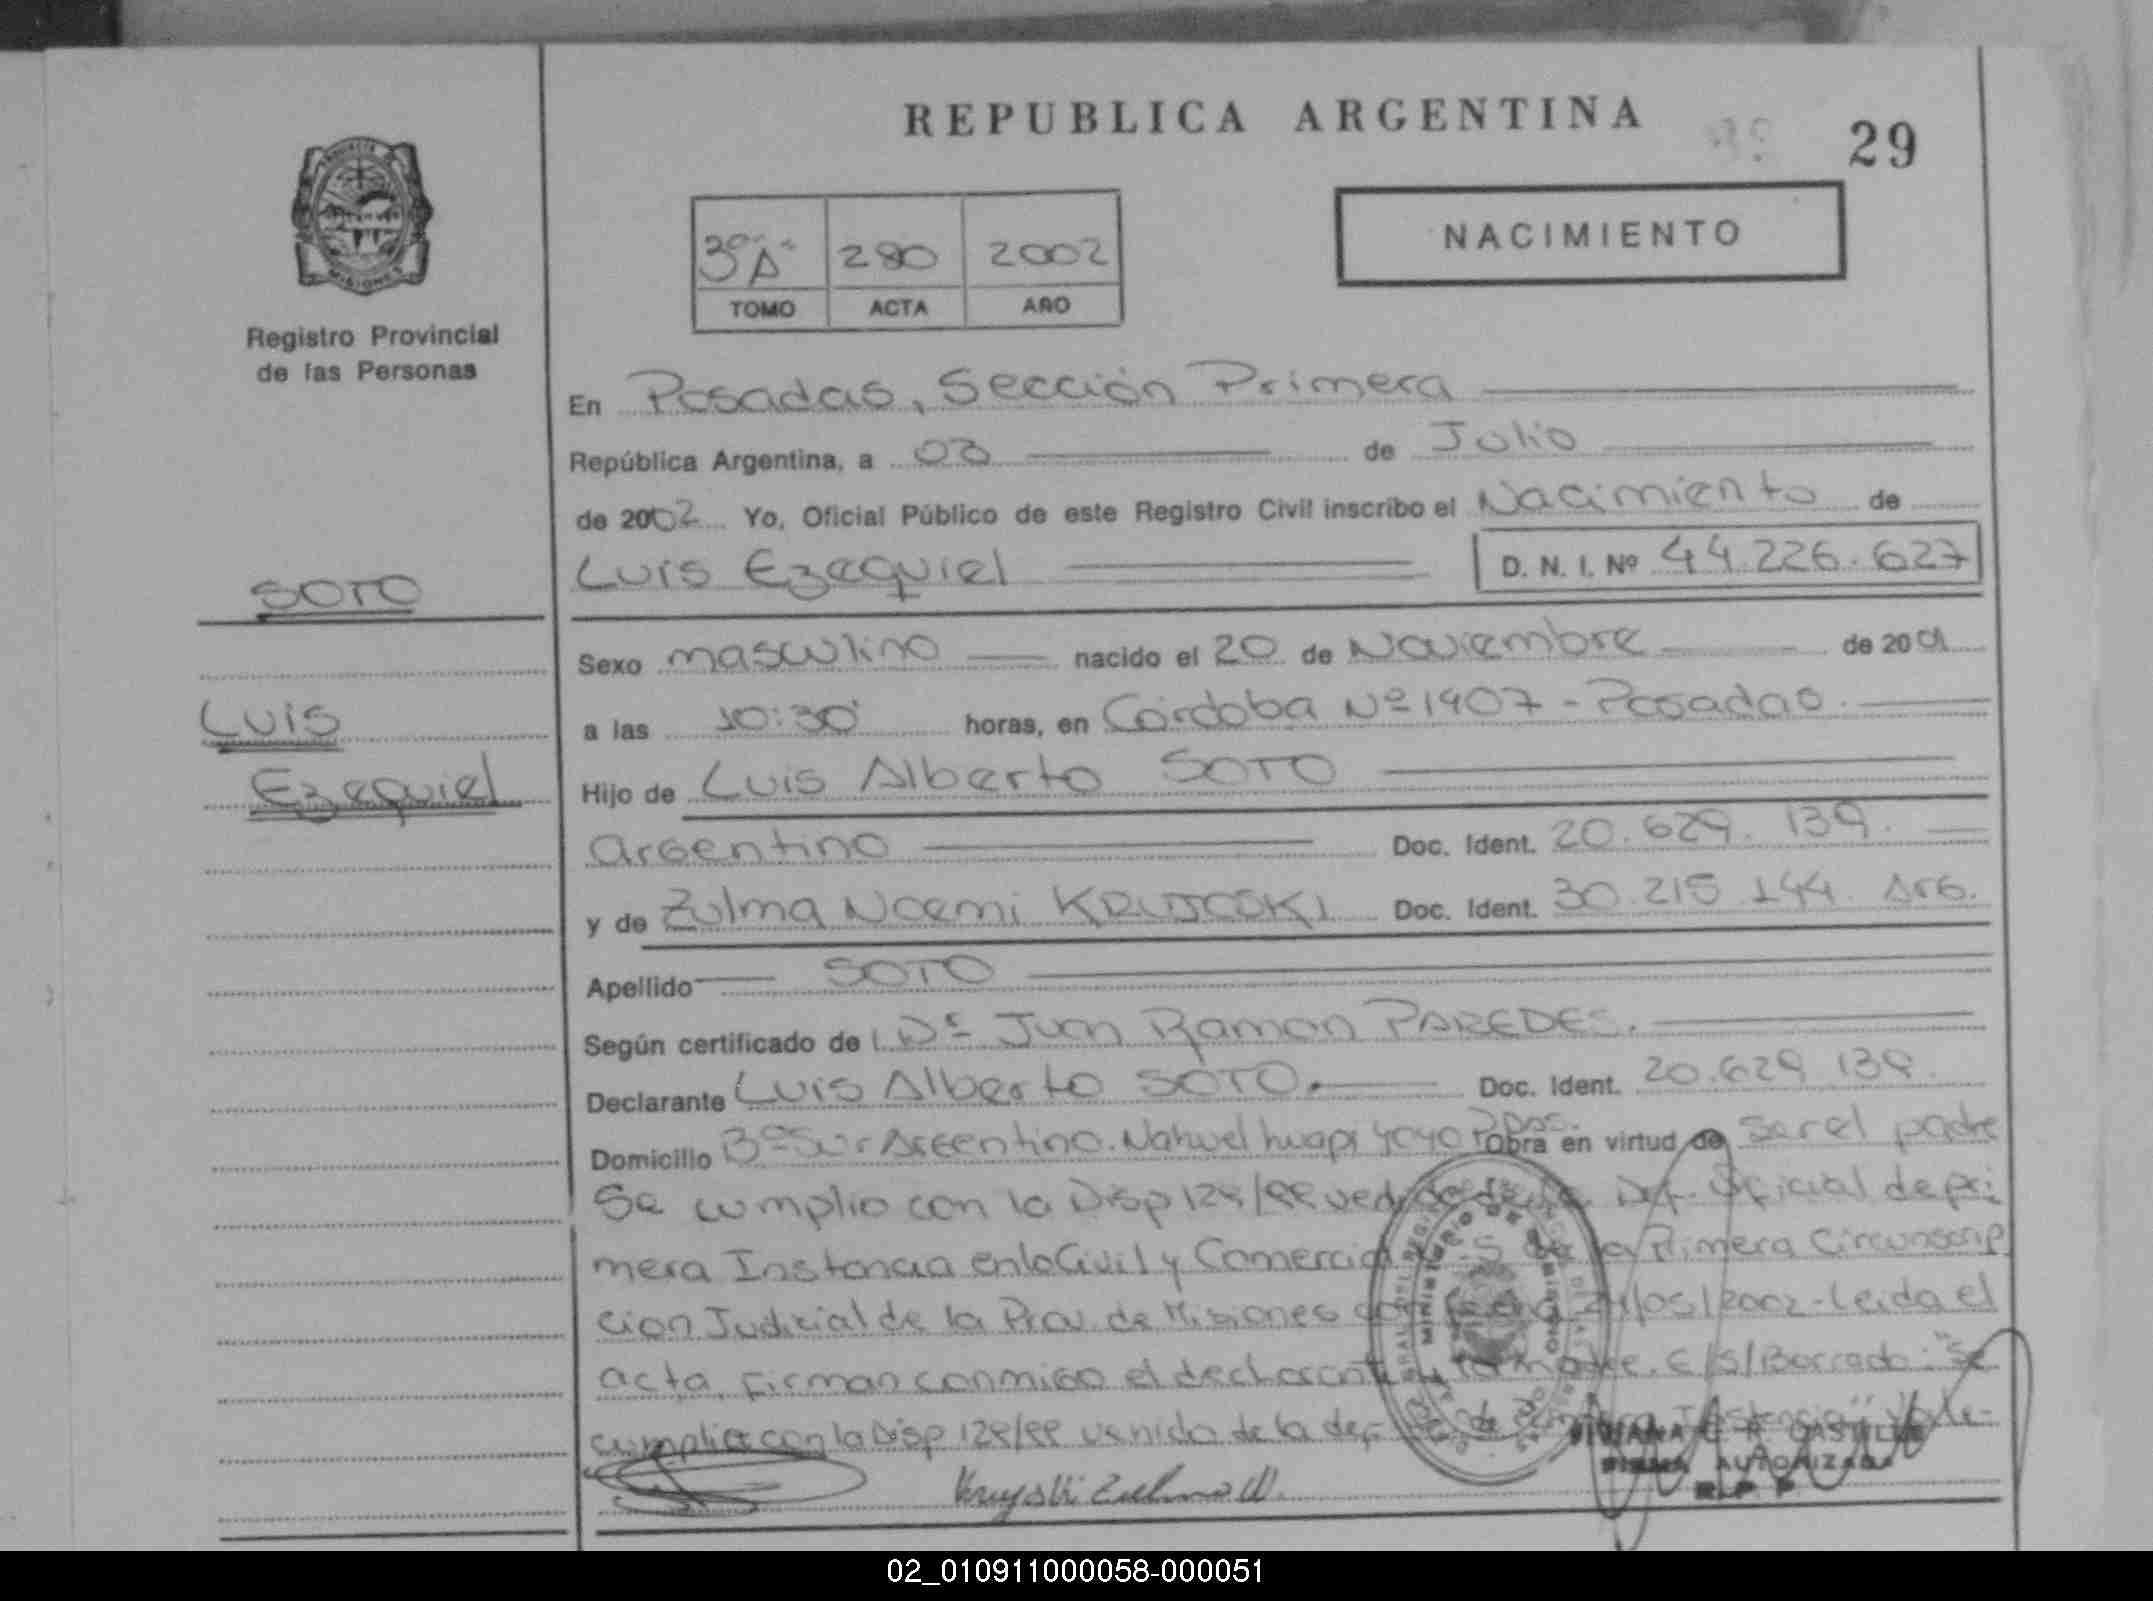 REPUBLICA ARGENTINA
29
NACIMIENTO
3º "A" 280 2002
TOMO ACTA AÑO
Registro Provincial
de las Personas
En Posadas, Sección Primera
República Argentina, a 03 de Julio
de 2002 Yo, Oficial Público de este Registro Civil inscribo el Nacimiento de
Luis Ezequiel D. N. I. Nº 44.226.627
SOTO
Luis
Ezequiel
Sexo masculino nacido el 20 de Noviembre de 2001
a las 10:30 horas, en Córdoba Nº 1907 - Posadas.
Hijo de Luis Alberto SOTO
argentino Doc. Ident. 20.629.139.
y de Zulma Noemi Doc. Ident. 30.215.144. Arg.
Apellido SOTO
Según certificado de Dr. Juan Ramon PAREDES.
Declarante Luis Alberto SOTO. Doc. Ident. 20.629.139.
Domicilio Bº Sur Argentino. Nahuel huapi Pdas. Obra en virtud de ser el padre
Se cumplio con la Disp Def. Oficial de pri
mera Instancia en lo Civil y Comercial de la Primera Circunscrip
cion Judicial de la Prov. de Misiones con fecha /05/2002 - Leida el
acta, firman conmigo el declarante y la madre. E/S/Borrado: "Se
cumplio con la Disp venido de la def- de Primera Instancia" Vale-
MINISTERIO DE GOBIERNO
FIRMA AUTORIZADA
R. P. P.
02_010911000058-000051